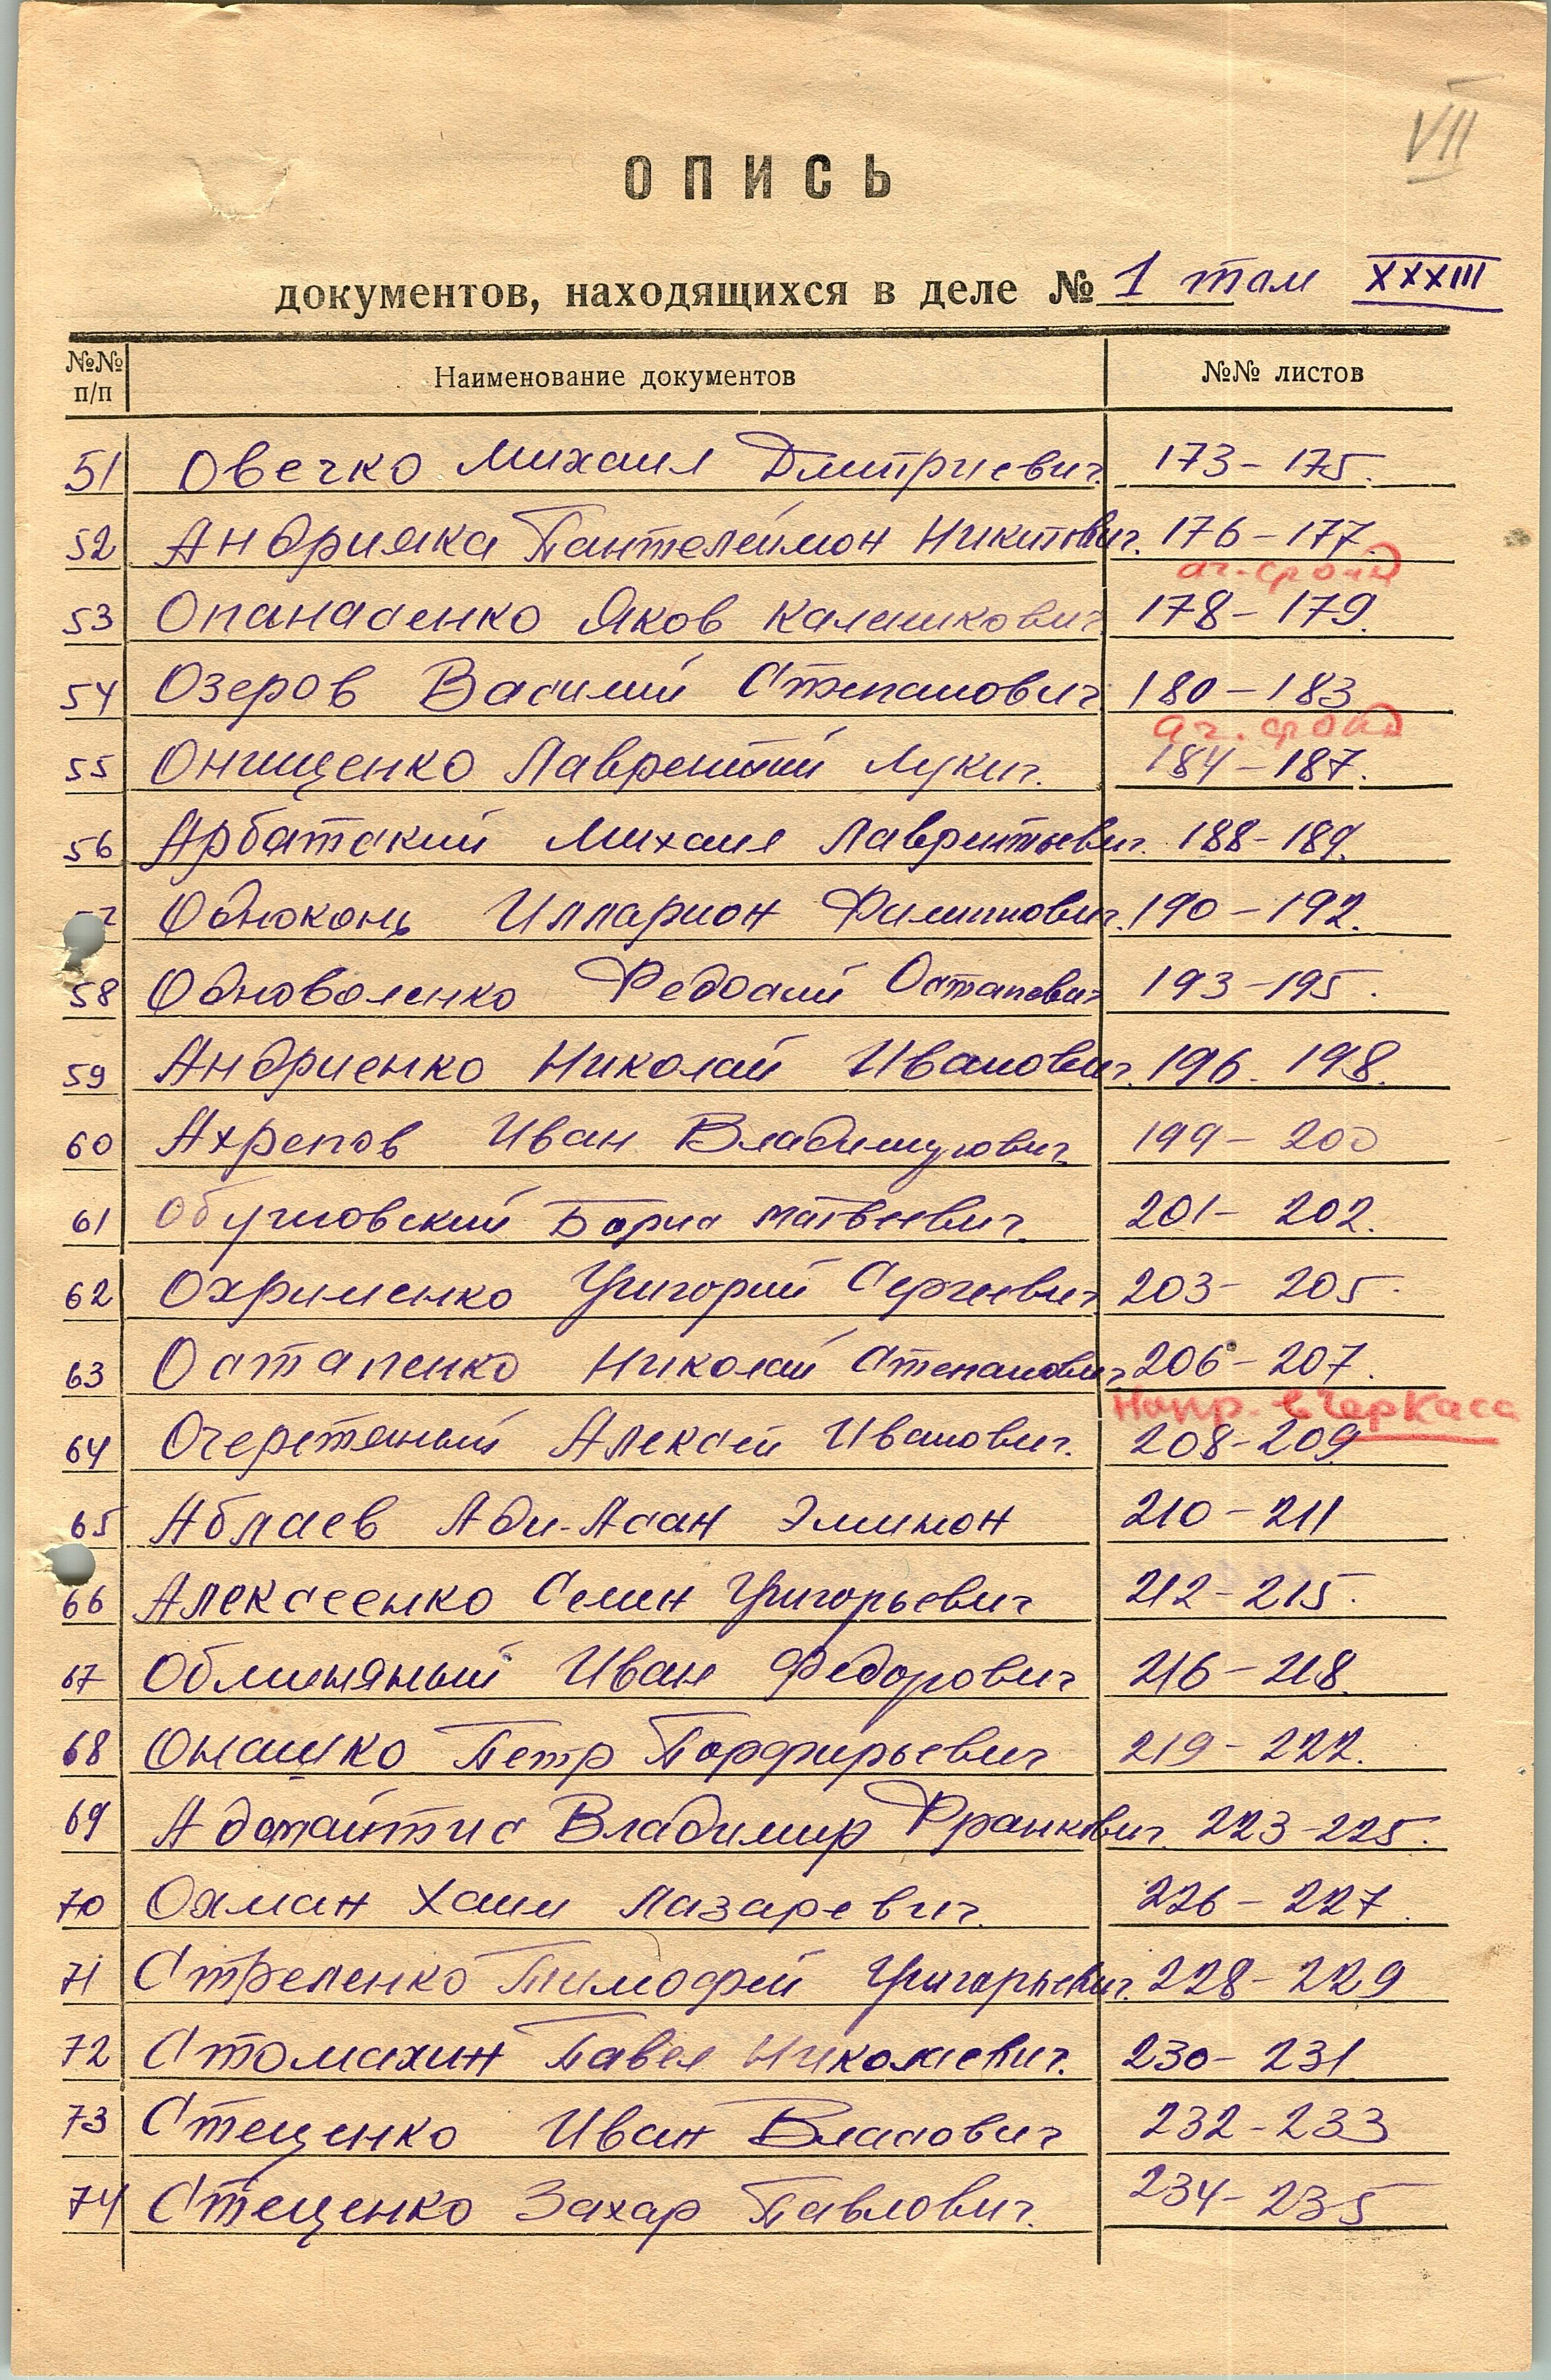 VII
ОПИСЬ
документов, находящихся в деле № 1 том XXXIII
№№ п/п Наименование документов №№ листов
51 Овечко Михаил Дмитриевич. 173-175.
52 Андрияка Пантелеймон Никитович. 176-177.
53 Опанасенко Яков Каленикович 178-179.
54 Озеров Василий Степанович 180-183
55 Онищенко Лаврентий Лукич. 184-187.
56 Арбатский Михаил Лаврентьевич. 188-189.
57 Одноконь Илларион Филиппович. 190-192.
58 Одноволенко Федосий Остапович 193-195.
59 Андриенко Николай Иванович. 196-198.
60 Ахрепов Иван Владимирович. 199-200
61 Обуховский Борис Матвеевич. 201-202.
62 Охрименко Григорий Сергеевич. 203-205.
63 Остапенко Николай Степанович 206-207.
Напр. в Черкасс
64 Очеретяный Алексей Иванович. 208-209
65 Аблаев Аби-Асан Эминон 210-211
66 Алексеенко Семен Григорьевич 212-215.
67 Облиняный Иван Федорович 216-218.
68 Онашко Петр Порфирьевич 219-222.
69 Адомайтис Владимир Франкович. 223-225.
70 Охман Хаим Лазаревич. 226-227.
71 Стреленко Тимофей Григорьевич. 228-229
72 Стомахин Павел Николаевич. 230-231
73 Стеценко Иван Власович 232-233
74 Стеценко Захар Павлович. 234-235